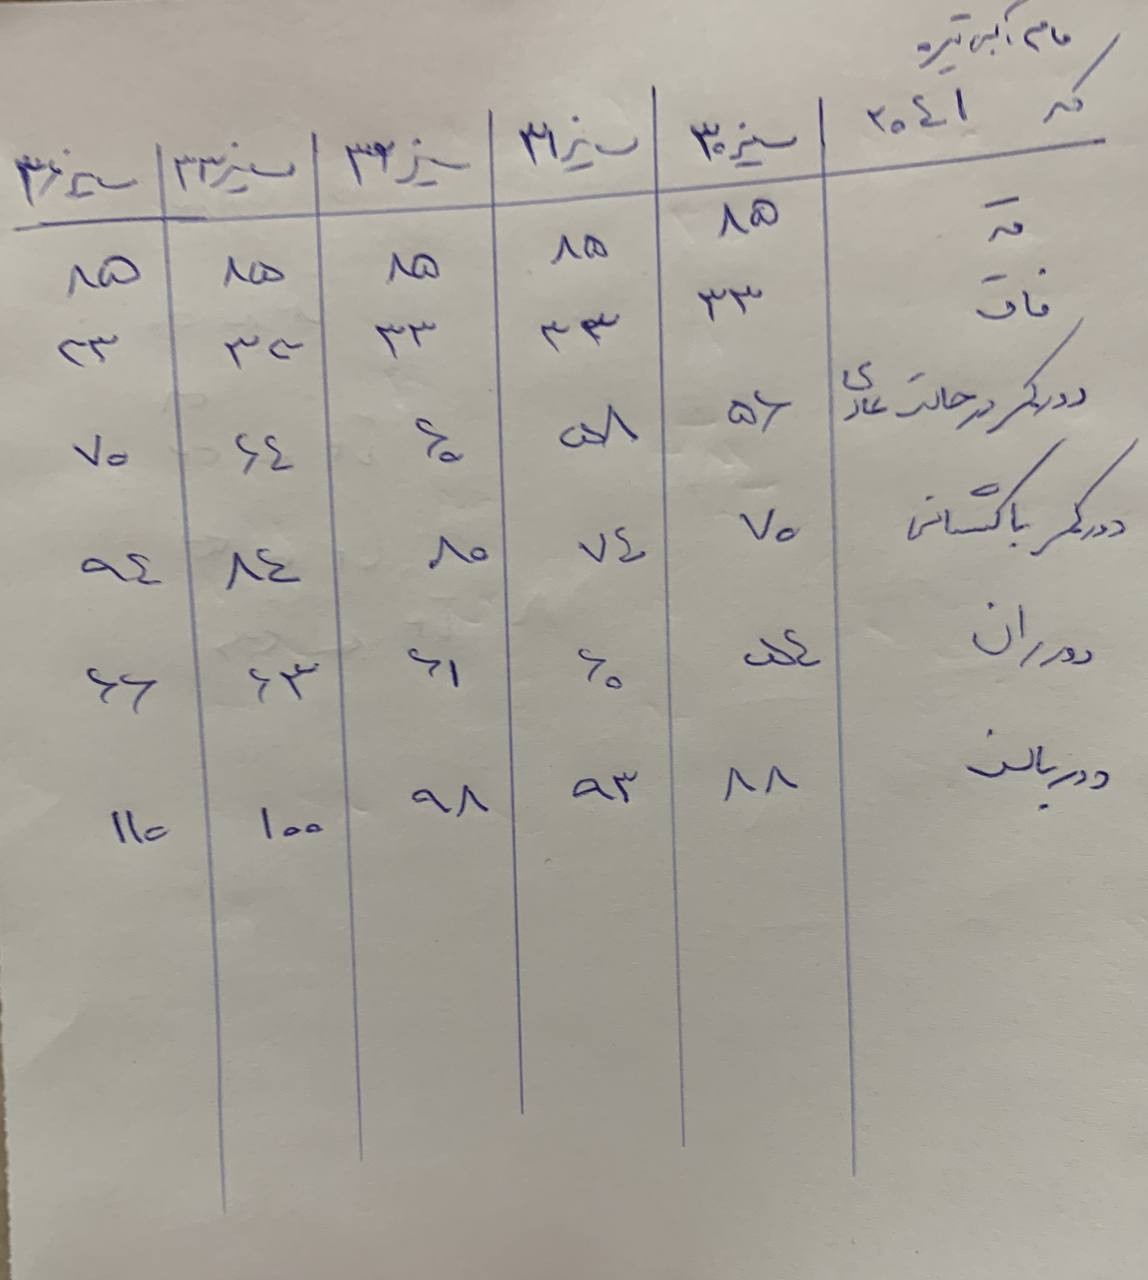 مام آبی تیره
کد ۲۰۴۱
سیز۳۰ سیز۳۱ سیز۳۲ سیز۳۳ سیز۳۶
قد ۸۵ ۸۵ ۸۵ ۸۵ ۸۵
فاق ۳۳ ۳۳ ۳۳ ۳۳ ۳۳
دور کمر در حالت عادی ۵۶ ۵۸ ۶۰ ۶۴ ۷۰
دور کمر با کشسانی ۷۰ ۷۴ ۸۰ ۸۴ ۹۴
دور ران ۵۴ ۶۰ ۶۱ ۶۳ ۶۶
دور باسن ۸۸ ۹۳ ۹۸ ۱۰۰ ۱۱۰